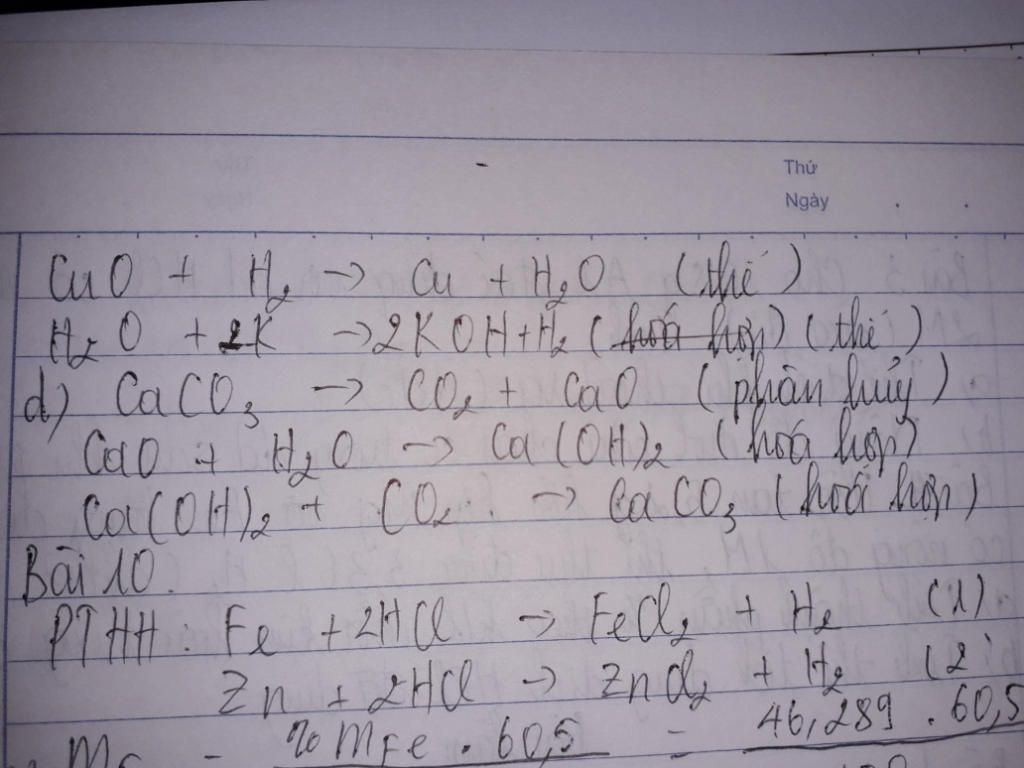 Thứ
Ngày
CuO + H₂ → Cu + H₂O (thế)
H₂O + 2K → 2KOH + H₂ (hoá hợp) (thế)
d) CaCO₃ → CO₂ + CaO (phân hủy)
CaO + H₂O → Ca(OH)₂ (hoá hợp)
Ca(OH)₂ + CO₂ → CaCO₃ (hoá hợp)
Bài 10.
PTHH: Fe + 2HCl → FeCl₂ + H₂ (1)
Zn + 2HCl → ZnCl₂ + H₂ (2)
= %mFe . 60,5 = 46,289 . 60,5